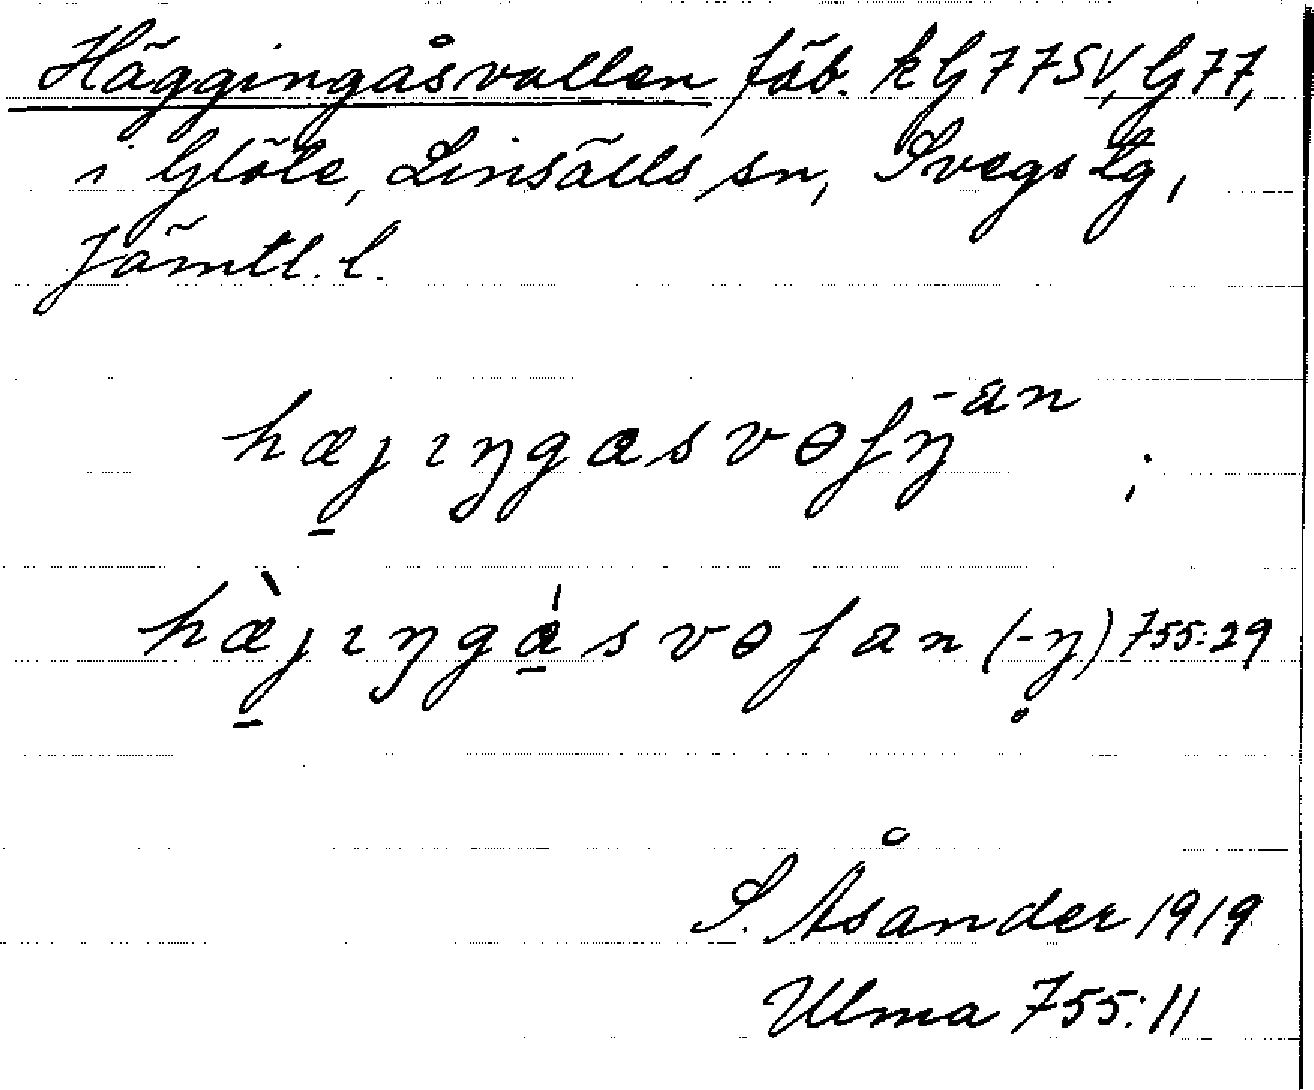 Häggingåsvallen fäb. k G 77SV, G77,
i Glöte, Linsälls sn, Svegs tg,
Jämtl. l.
hæȷıŋgasvɵʃn̥ -an ;
hæ̀ȷıŋgásvɵʃan (-n̥) 755:29
S. Åsander 1919
Ulma 755:11